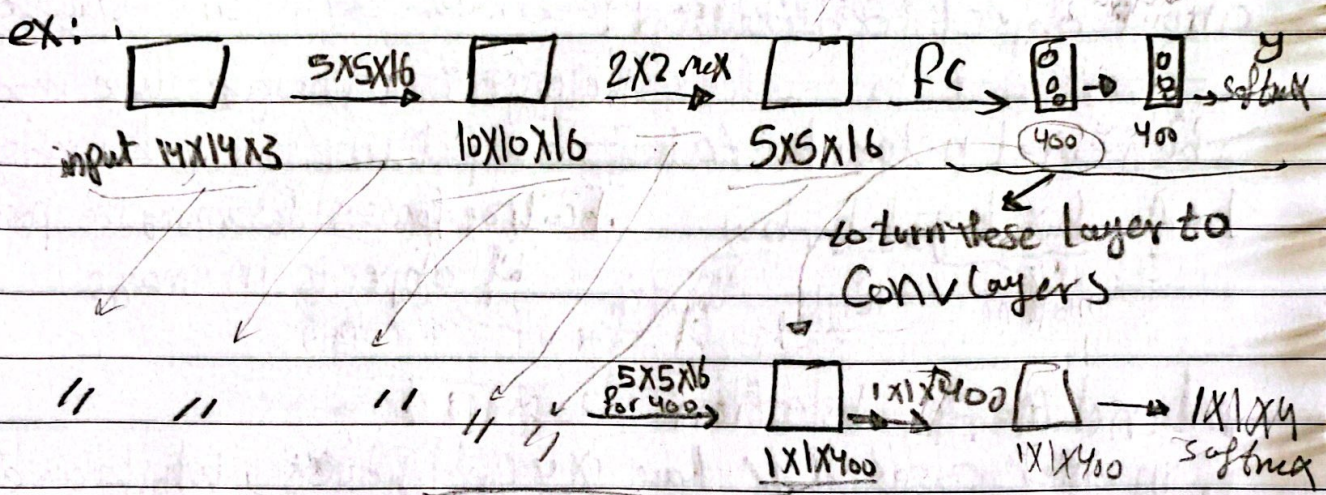 ex:
5x5x16 2x2 max FC y
softmax
input 14x14x3 10x10x16 5x5x16 400 400
to turn these layer to
Conv Layers
5x5x16
for 400 1x1x400 1x1x4
softmax
1x1x400 1x1x400